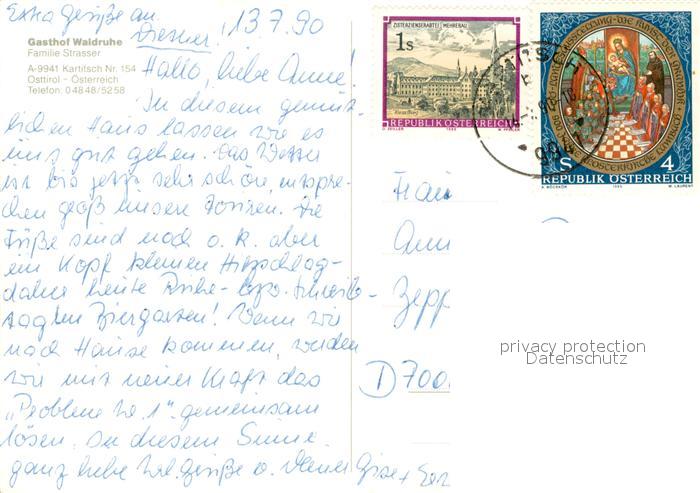 Extra Grüße an
Werner! 13.7.90
Gasthof Waldruhe
Familie Strasser
A-9941 Kartitsch Nr. 154
Osttirol - Österreich
Telefon: 04848/5258
Hallo, liebe Anne!
In diesem gemüt-
lichen Haus lassen wir es
uns gut gehen. Das Wetter
ist bis jetzt sehr schön, entspre-
chend groß unsere Touren. Die
Füße sind noch o.k. aber
ein Kopf kleinen Hitzschlag-
daher heute Ruhe- bzw. Schreib-
tag im Biergarten! Wenn wir
nach Hause kommen, werden
wir mit neuer Kraft das
„Problem Nr. 1" gemeinsam
lösen. In diesem Sinne
ganz liebe Grüße
ZISTERZIENSERABTEI MEHRERAU
1s
REPUBLIK ÖSTERREICH
S 4
REPUBLIK ÖSTERREICH
Frau
Ann
Zepp
D 700
privacy protection
Datenschutz